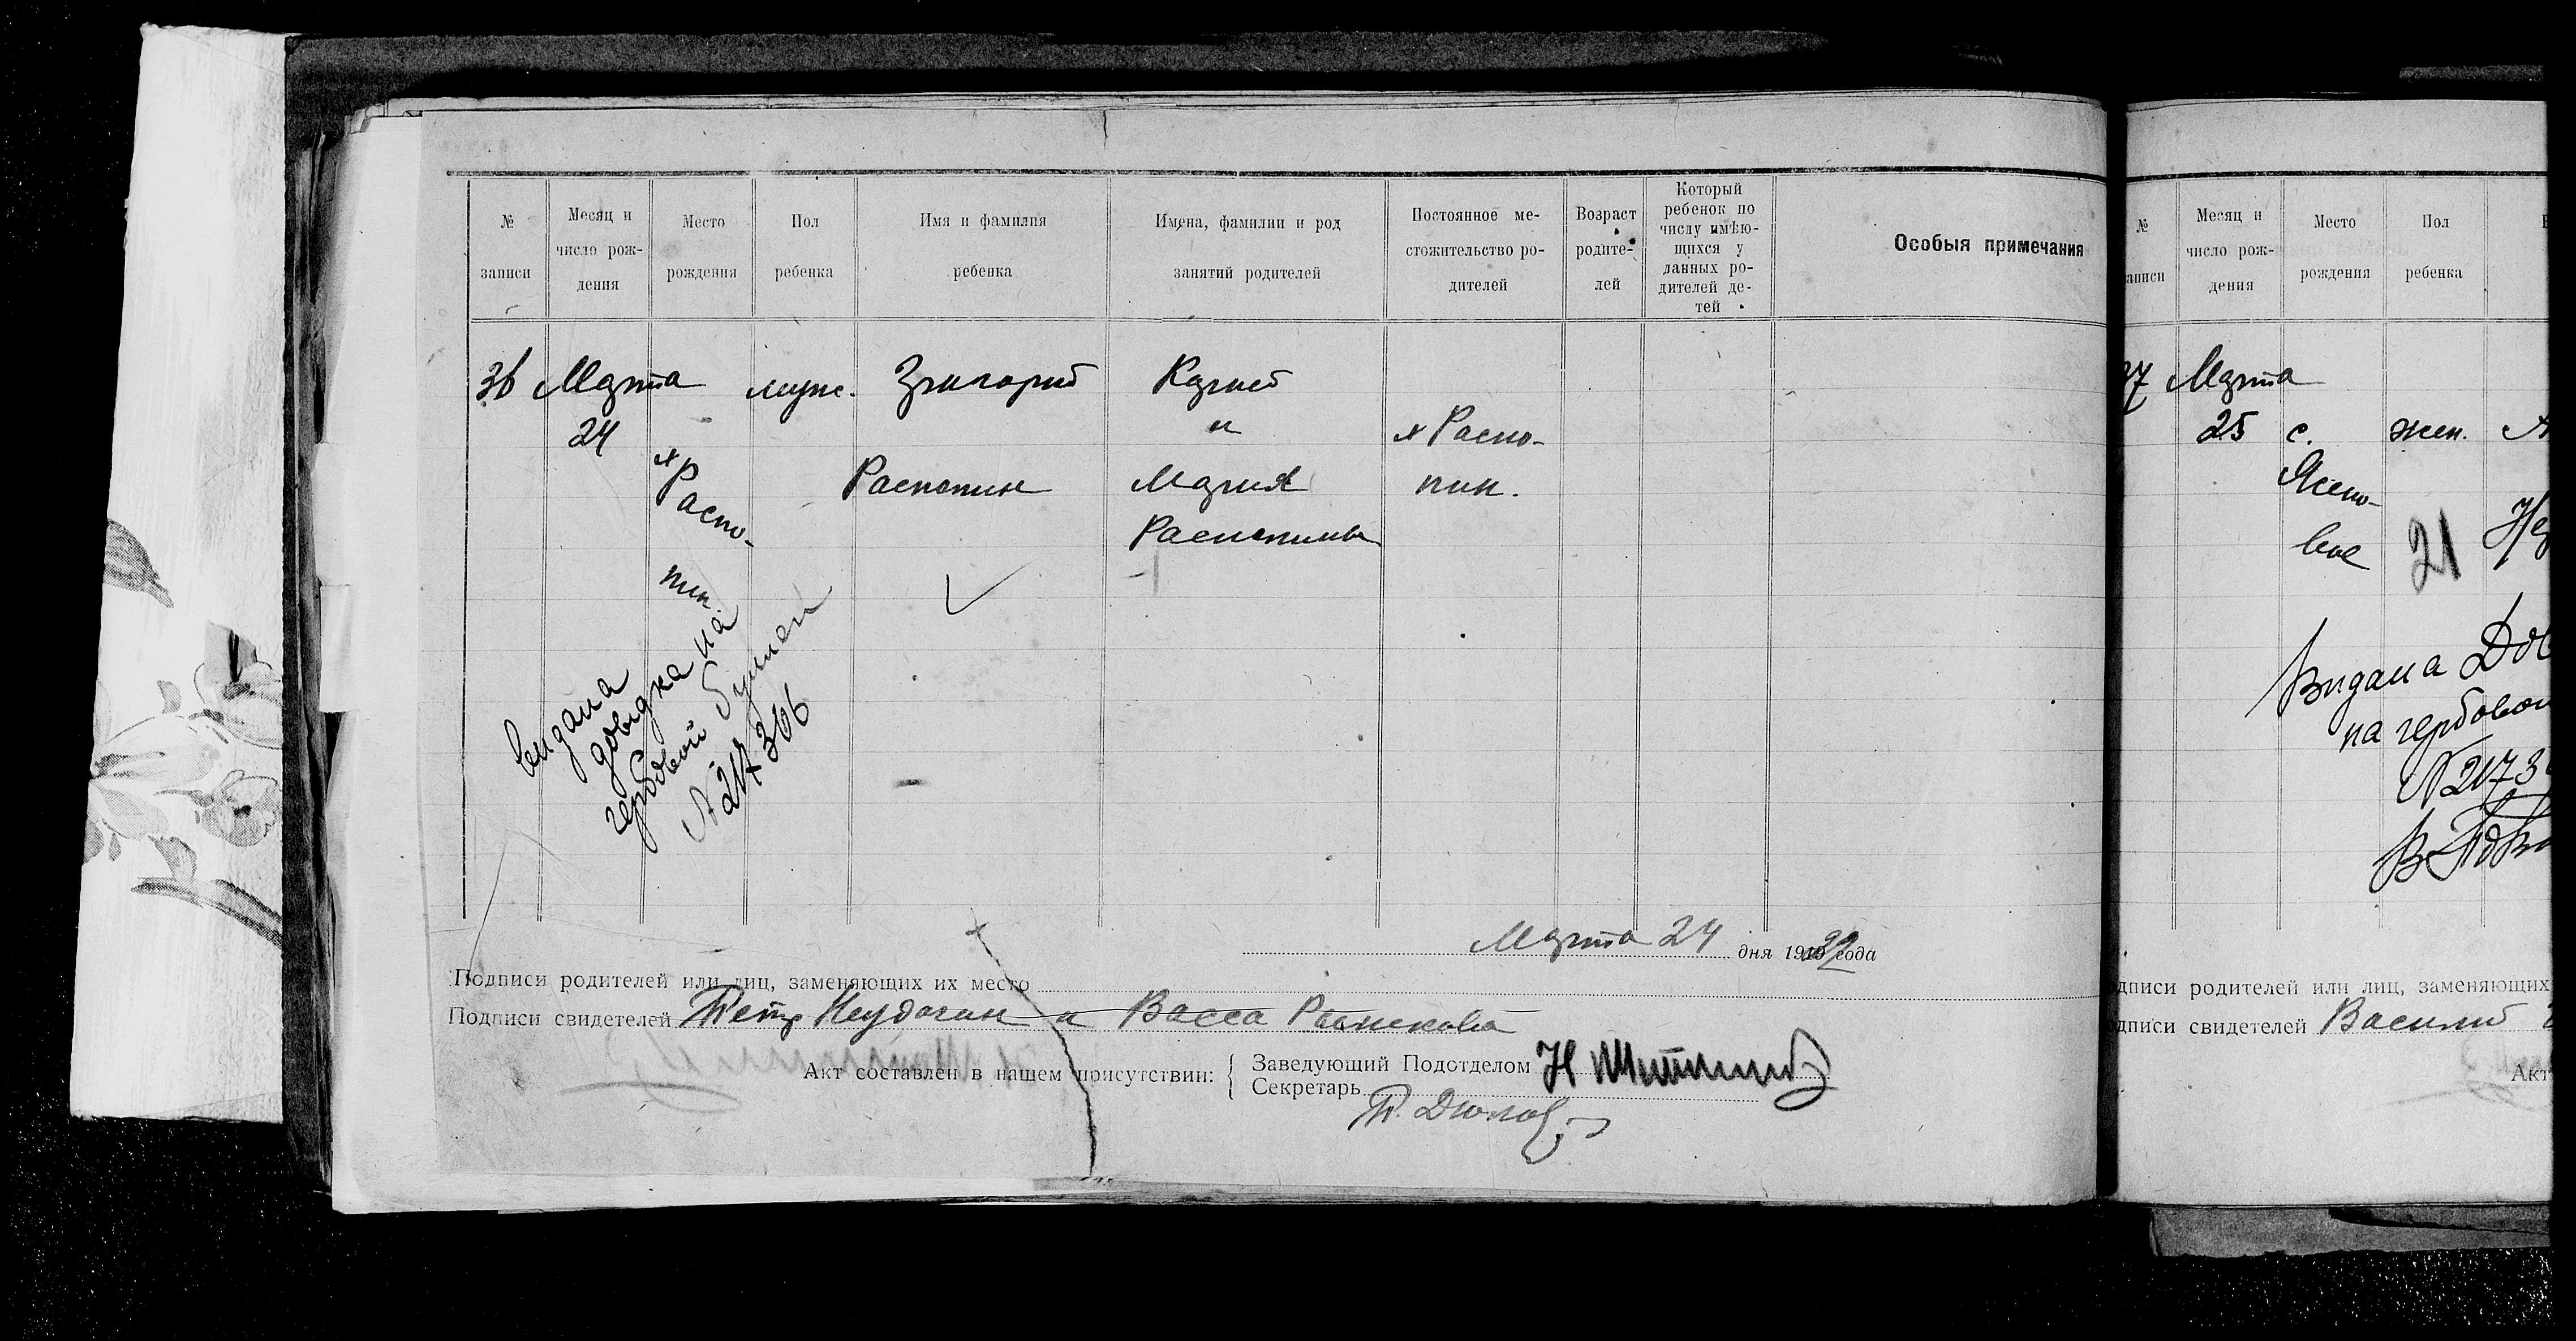 № записи
Месяц и число рождения
Место рождения
Пол ребенка
Имя и фамилия ребенка
Имена, фамилии и род занятий родителей
Постоянное местожительство родителей
Возраст родителей
Который ребенок по числу имѣющихся у данных родителей детей
Особыя примечания
36 Марта муж. Григорий Карней
24 и х Распо-
х Распо- Распопин Мария пин.
Распопины
пин.
видана
довидка на
гербовой бумаги
№ 217306
Марта 24 дня 1922 года
Подписи родителей или лиц, заменяющих их место
Подписи свидетелей Петр Неудачин и Васса
Акт составлен в нашем присутствии:
Заведующий Подотделом Н
Секретарь
№ записи
Месяц и число рождения
Место рождения
Пол ребенка
37 Марта
25 с. жен. А
Ясено-
вое 21
Видана Дов
на гербовой
№ 2173
одписи родителей или лиц, заменяющих
одписи свидетелей Василий
Акт